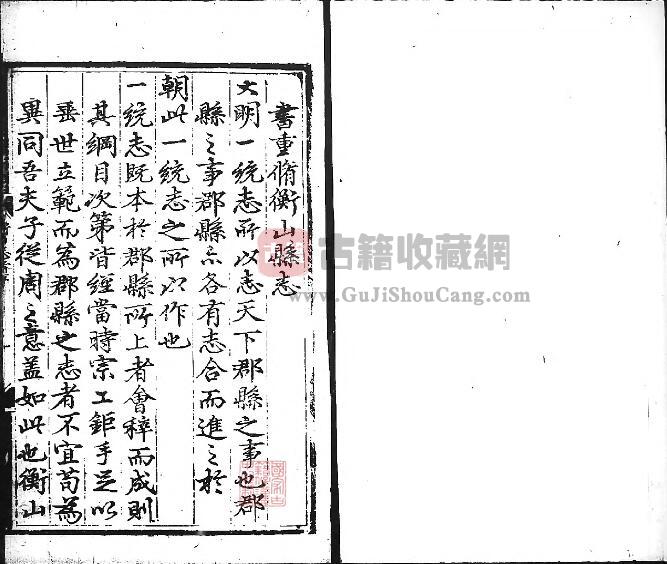 書重脩衡山縣志
大明一統志所以志天下郡縣之事也郡
縣之事郡縣亦各有志合而進之於
朝此一統志之所以作也
一統志既本於郡縣所上者會稡而成則
其綱目次第皆經當時宗工鉅手足以
垂世立範而為郡縣之志者不宜苟為
異同吾夫子從周之意蓋如此也衡山
古籍收藏網
www.GuJiShouCang.com